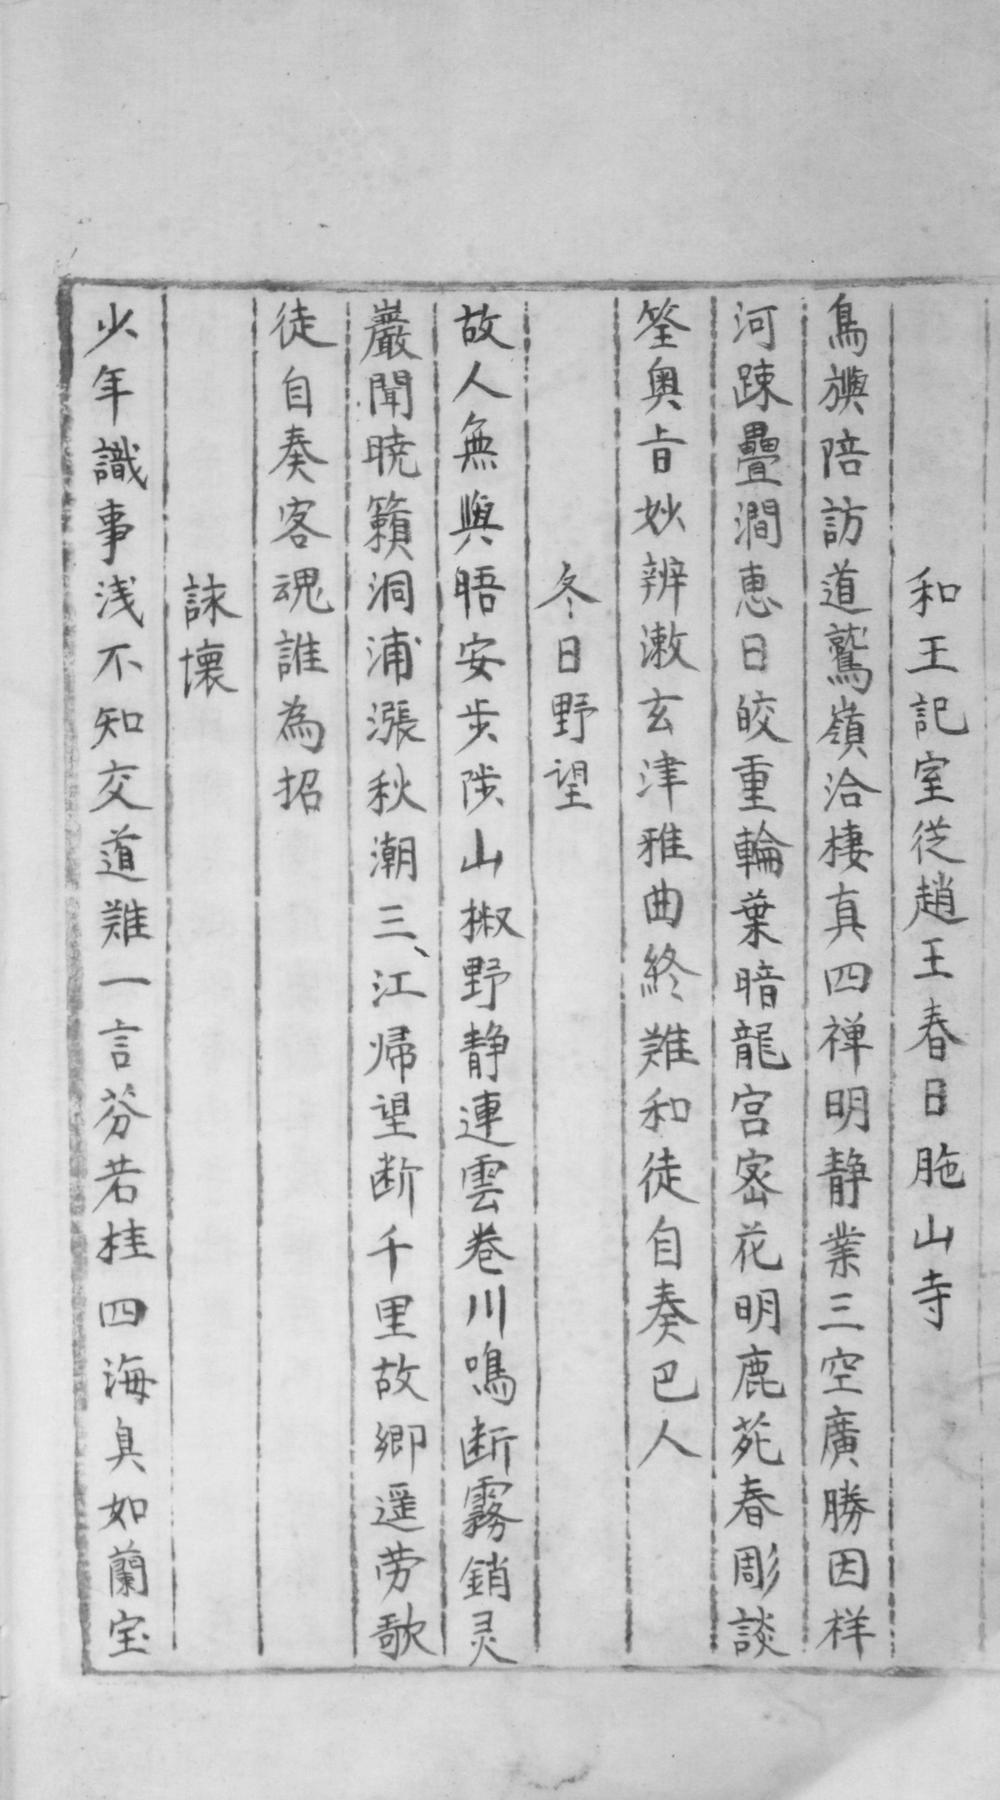 和王記室從趙王春日陁山寺
鳥旟陪訪道鷲嶺洽棲真四禅明静業三空廣勝因样
河踈疊澗惠日皎重輪葉暗龍宫宻花明鹿苑春彫談
筌奥旨妙辨漱玄津雅曲終難和徒自奏巴人
冬日野望
故人無與晤安步陟山椒野静連雲卷川鳴断霧銷灵
巖聞暁籟洞浦漲秋潮三江帰望断千里故郷遥劳歌
徒自奏客魂誰為招
詠懷
少年識事浅不知交道難一言芬若桂四海臭如蘭宝